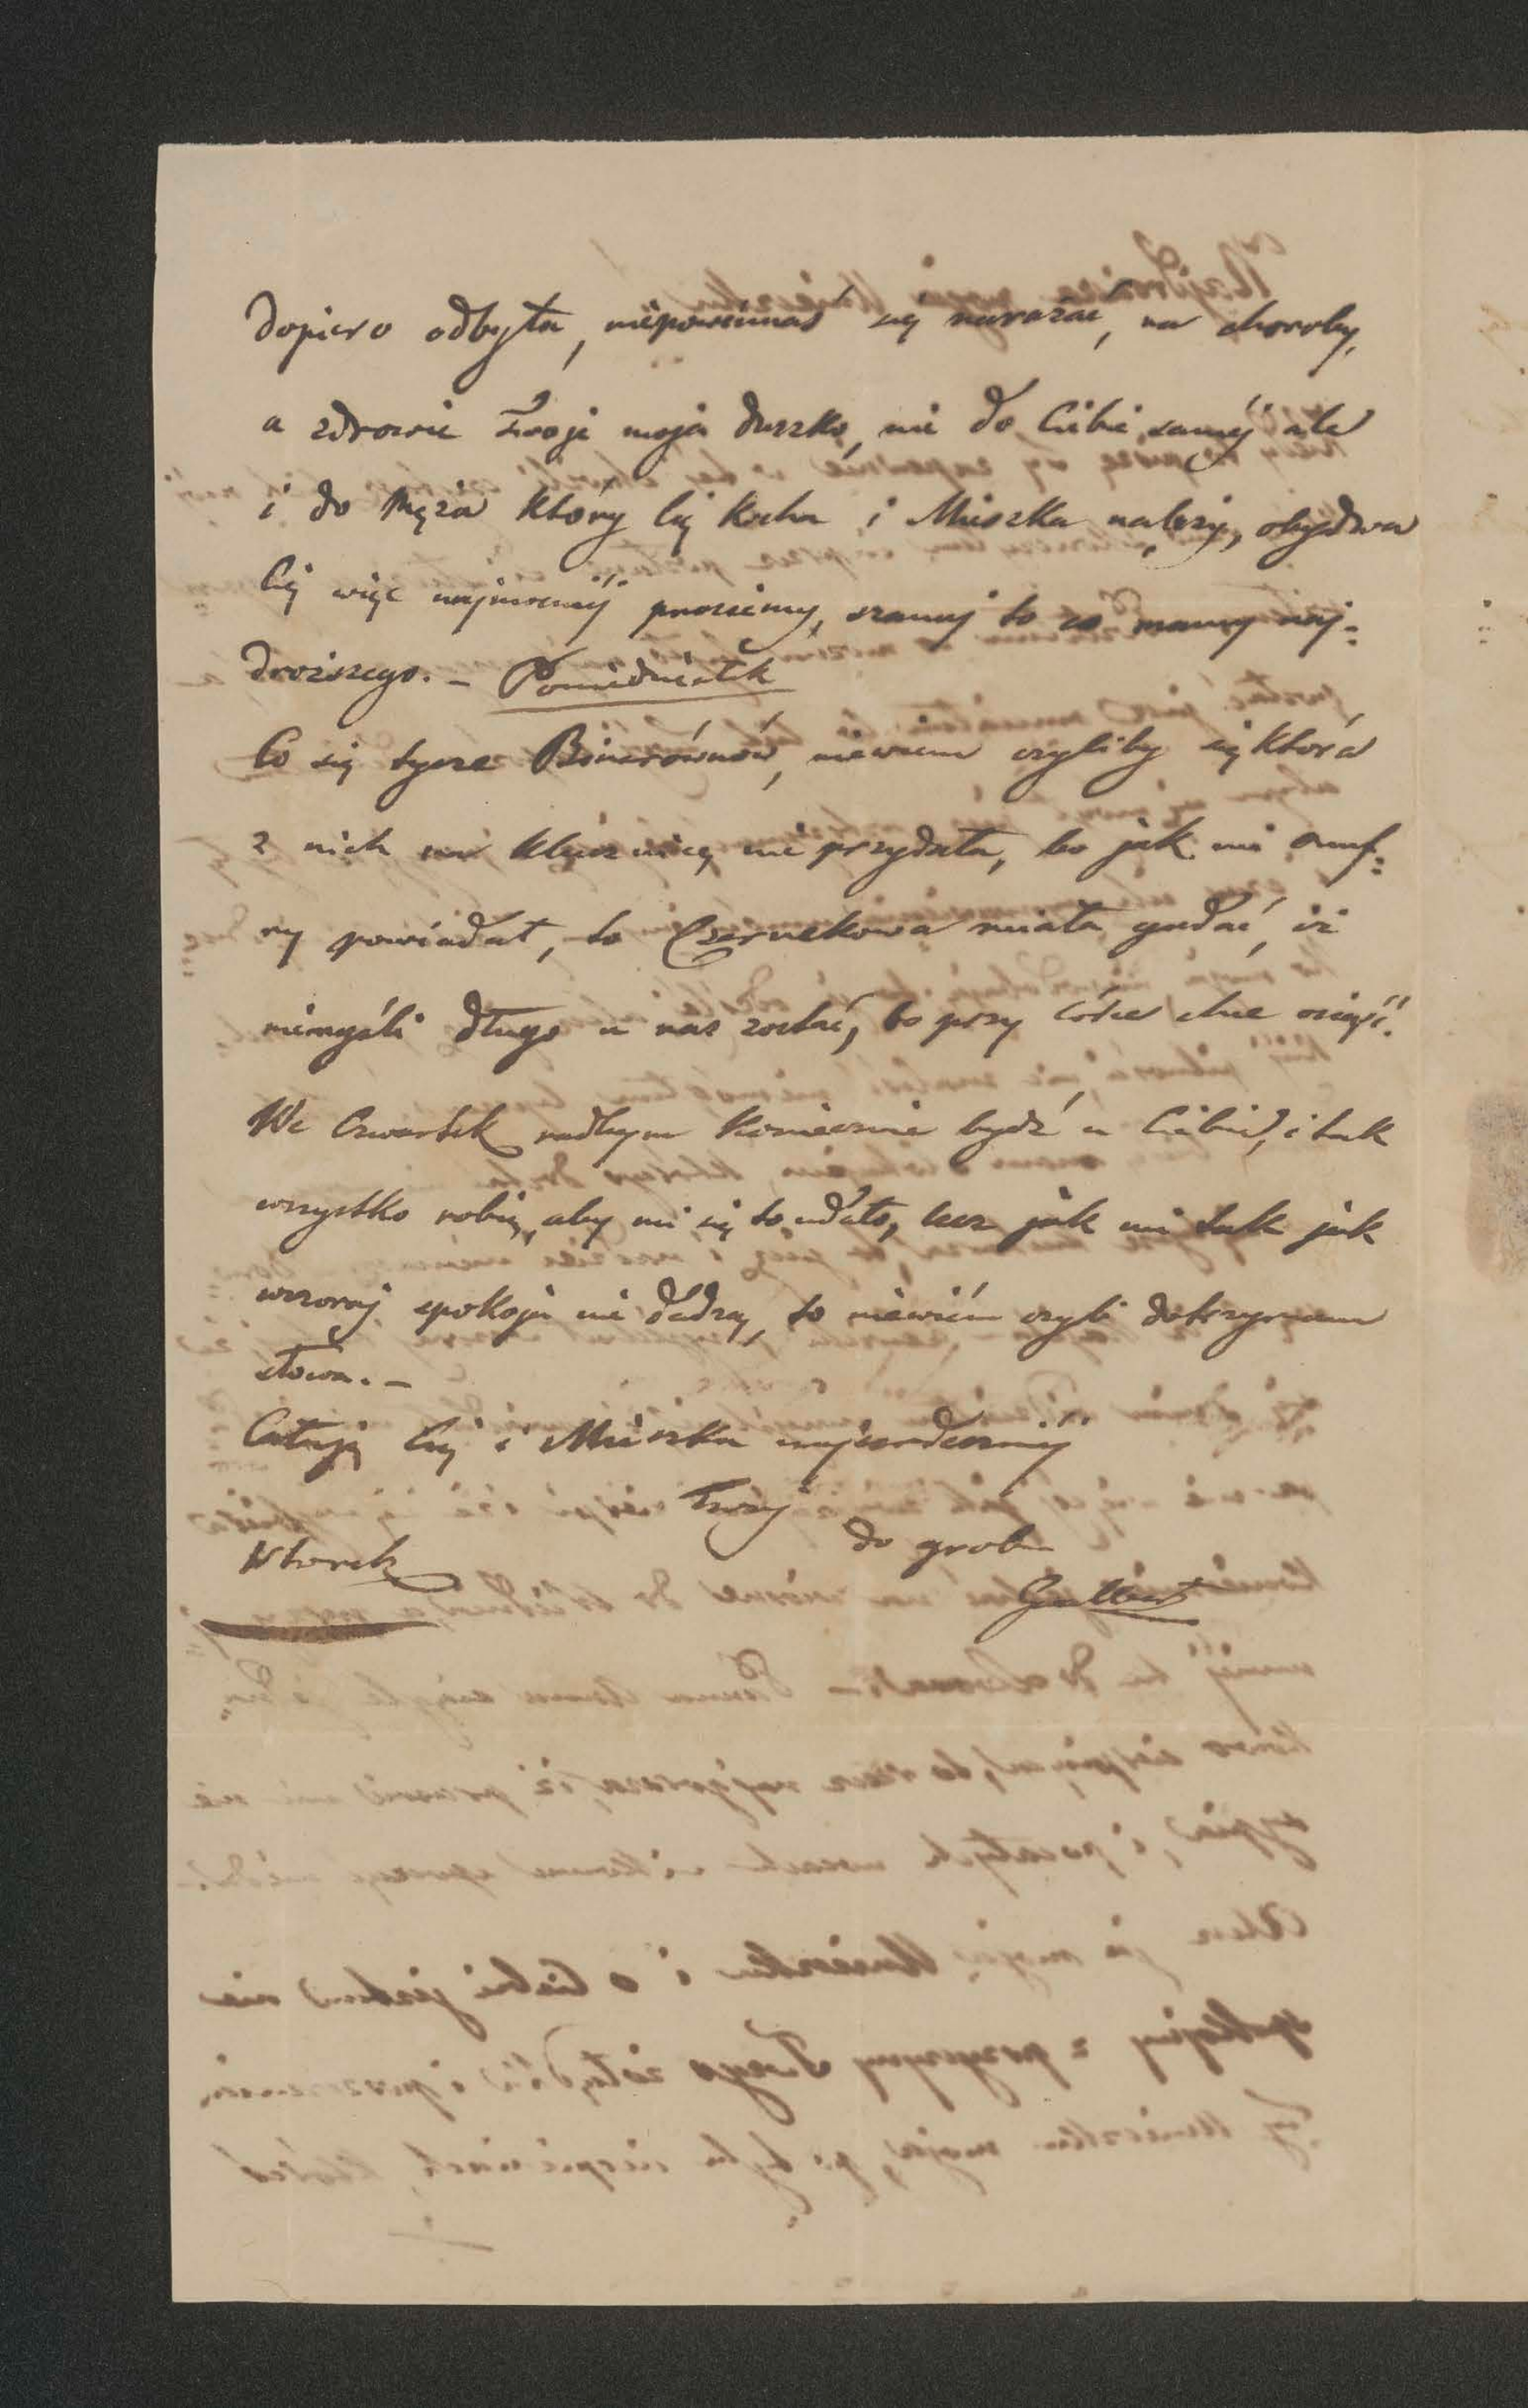 dopiero odbyła, niepowinnaś się narażać, na choroby,
a zdrowie Twoje moja duszko, nie do Ciebie saméj ale
i do Męża który Cię kocha i Mieszka należy, obydwa
Cię więc najmocniéj prosiemy, szanuj to co mamy naj=
droższego. – Poniedziałek
Co się tycze Binerównów, niewiem czyliby się która
z nich na klucznicę nie przydała, bo jak mi Onuf=
ry powiadał, to Czernekowa miała gadać, iż
niemyśli długo u nas zostać, bo przy córce chce osięść.
We Czwartek radbym koniecznie bydź u Ciebie, i tak
wszystko robię, aby mi się to udało, lecz jak mi tak jak
wczoraj spokoju nie dadzą, to niewiém czyli dotrzymam
słowa. –
Całuję Cię i Mieszka najserdeczniéj
Twój
do grobu
Wtorek